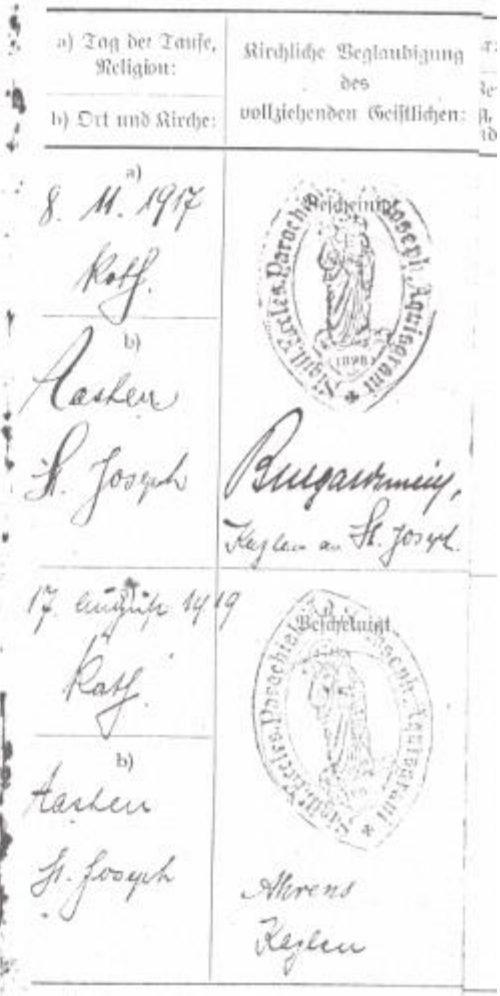 a) Tag der Taufe,
Religion:
b) Ort und Kirche:
Kirchliche Beglaubigung
des
vollziehenden Geistlichen:
a)
8. 11. 1917
kath.
b)
Aachen
St. Joseph
Bescheinigt
Sigill. Eccles. Paroch. Joseph Aquisgrani
1898
Kaplan an St. Joseph.
17. August 1919
kath.
b)
Aachen
St. Joseph
Bescheinigt
Sigill. Eccles. Parochial. Joseph Aquisgrani
Ahrens
Kaplan